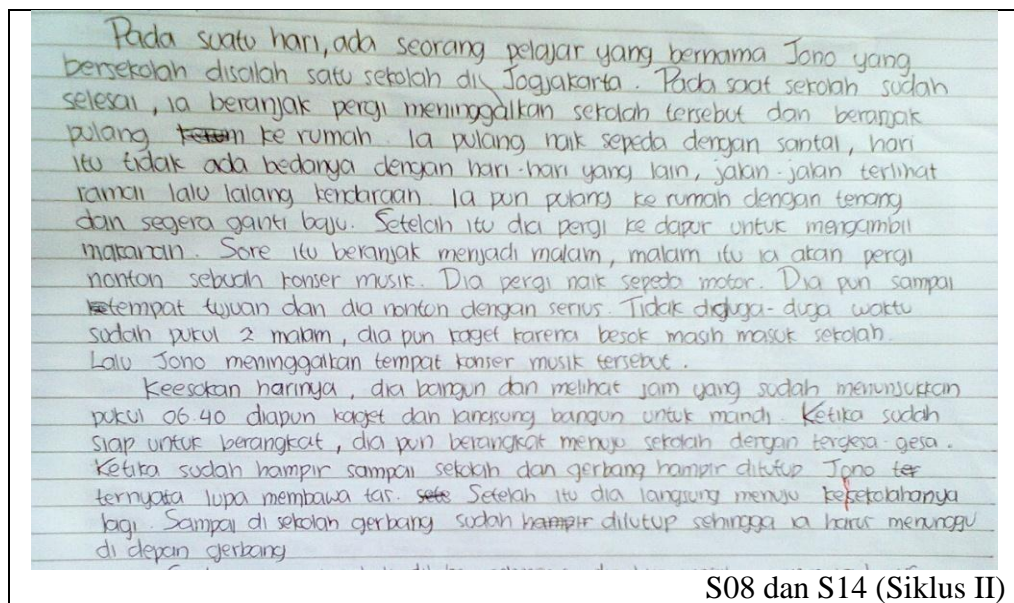 Pada suatu hari, ada seorang pelajar yang bernama Jono yang
bersekolah disalah satu sekolah di Jogjakarta. Pada saat sekolah sudah
selesai, ia beranjak pergi meninggalkan sekolah tersebut dan beranjak
pulang ke rumah. Ia pulang naik sepeda dengan santai, hari
itu tidak ada bedanya dengan hari-hari yang lain, jalan-jalan terlihat
ramai lalu lalang kendaraan. Ia pun pulang ke rumah dengan tenang
dan segera ganti baju. Setelah itu dia pergi ke dapur untuk mengambil
makanan. Sore itu beranjak menjadi malam, malam itu ia akan pergi
nonton sebuah konser musik. Dia pergi naik sepeda motor. Dia pun sampai
tempat tujuan dan dia nonton dengan serius. Tidak diduga-duga waktu
sudah pukul 2 malam, dia pun kaget karena besok masih masuk sekolah.
Lalu Jono meninggalkan tempat konser musik tersebut.
Keesokan harinya, dia bangun dan melihat jam yang sudah menunjukkan
pukul 06.40 diapun kaget dan langsung bangun untuk mandi. Ketika sudah
siap untuk berangkat, dia pun berangkat menuju sekolah dengan tergesa-gesa.
Ketika sudah hampir sampai sekolah dan gerbang hampir ditutup Jono
ternyata lupa membawa tas. Setelah itu dia langsung menuju kesekolahanya
lagi. Sampai di sekolah gerbang sudah ditutup sehingga ia harus menunggu
di depan gerbang
S08 dan S14 (Siklus II)